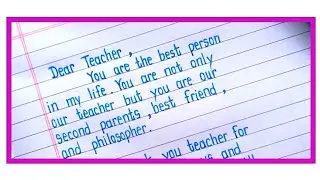 Dear Teacher,
You are the best person
in my life. You are not only
our teacher but you are our
second parents, best friend,
and philosopher.
you teacher for
and